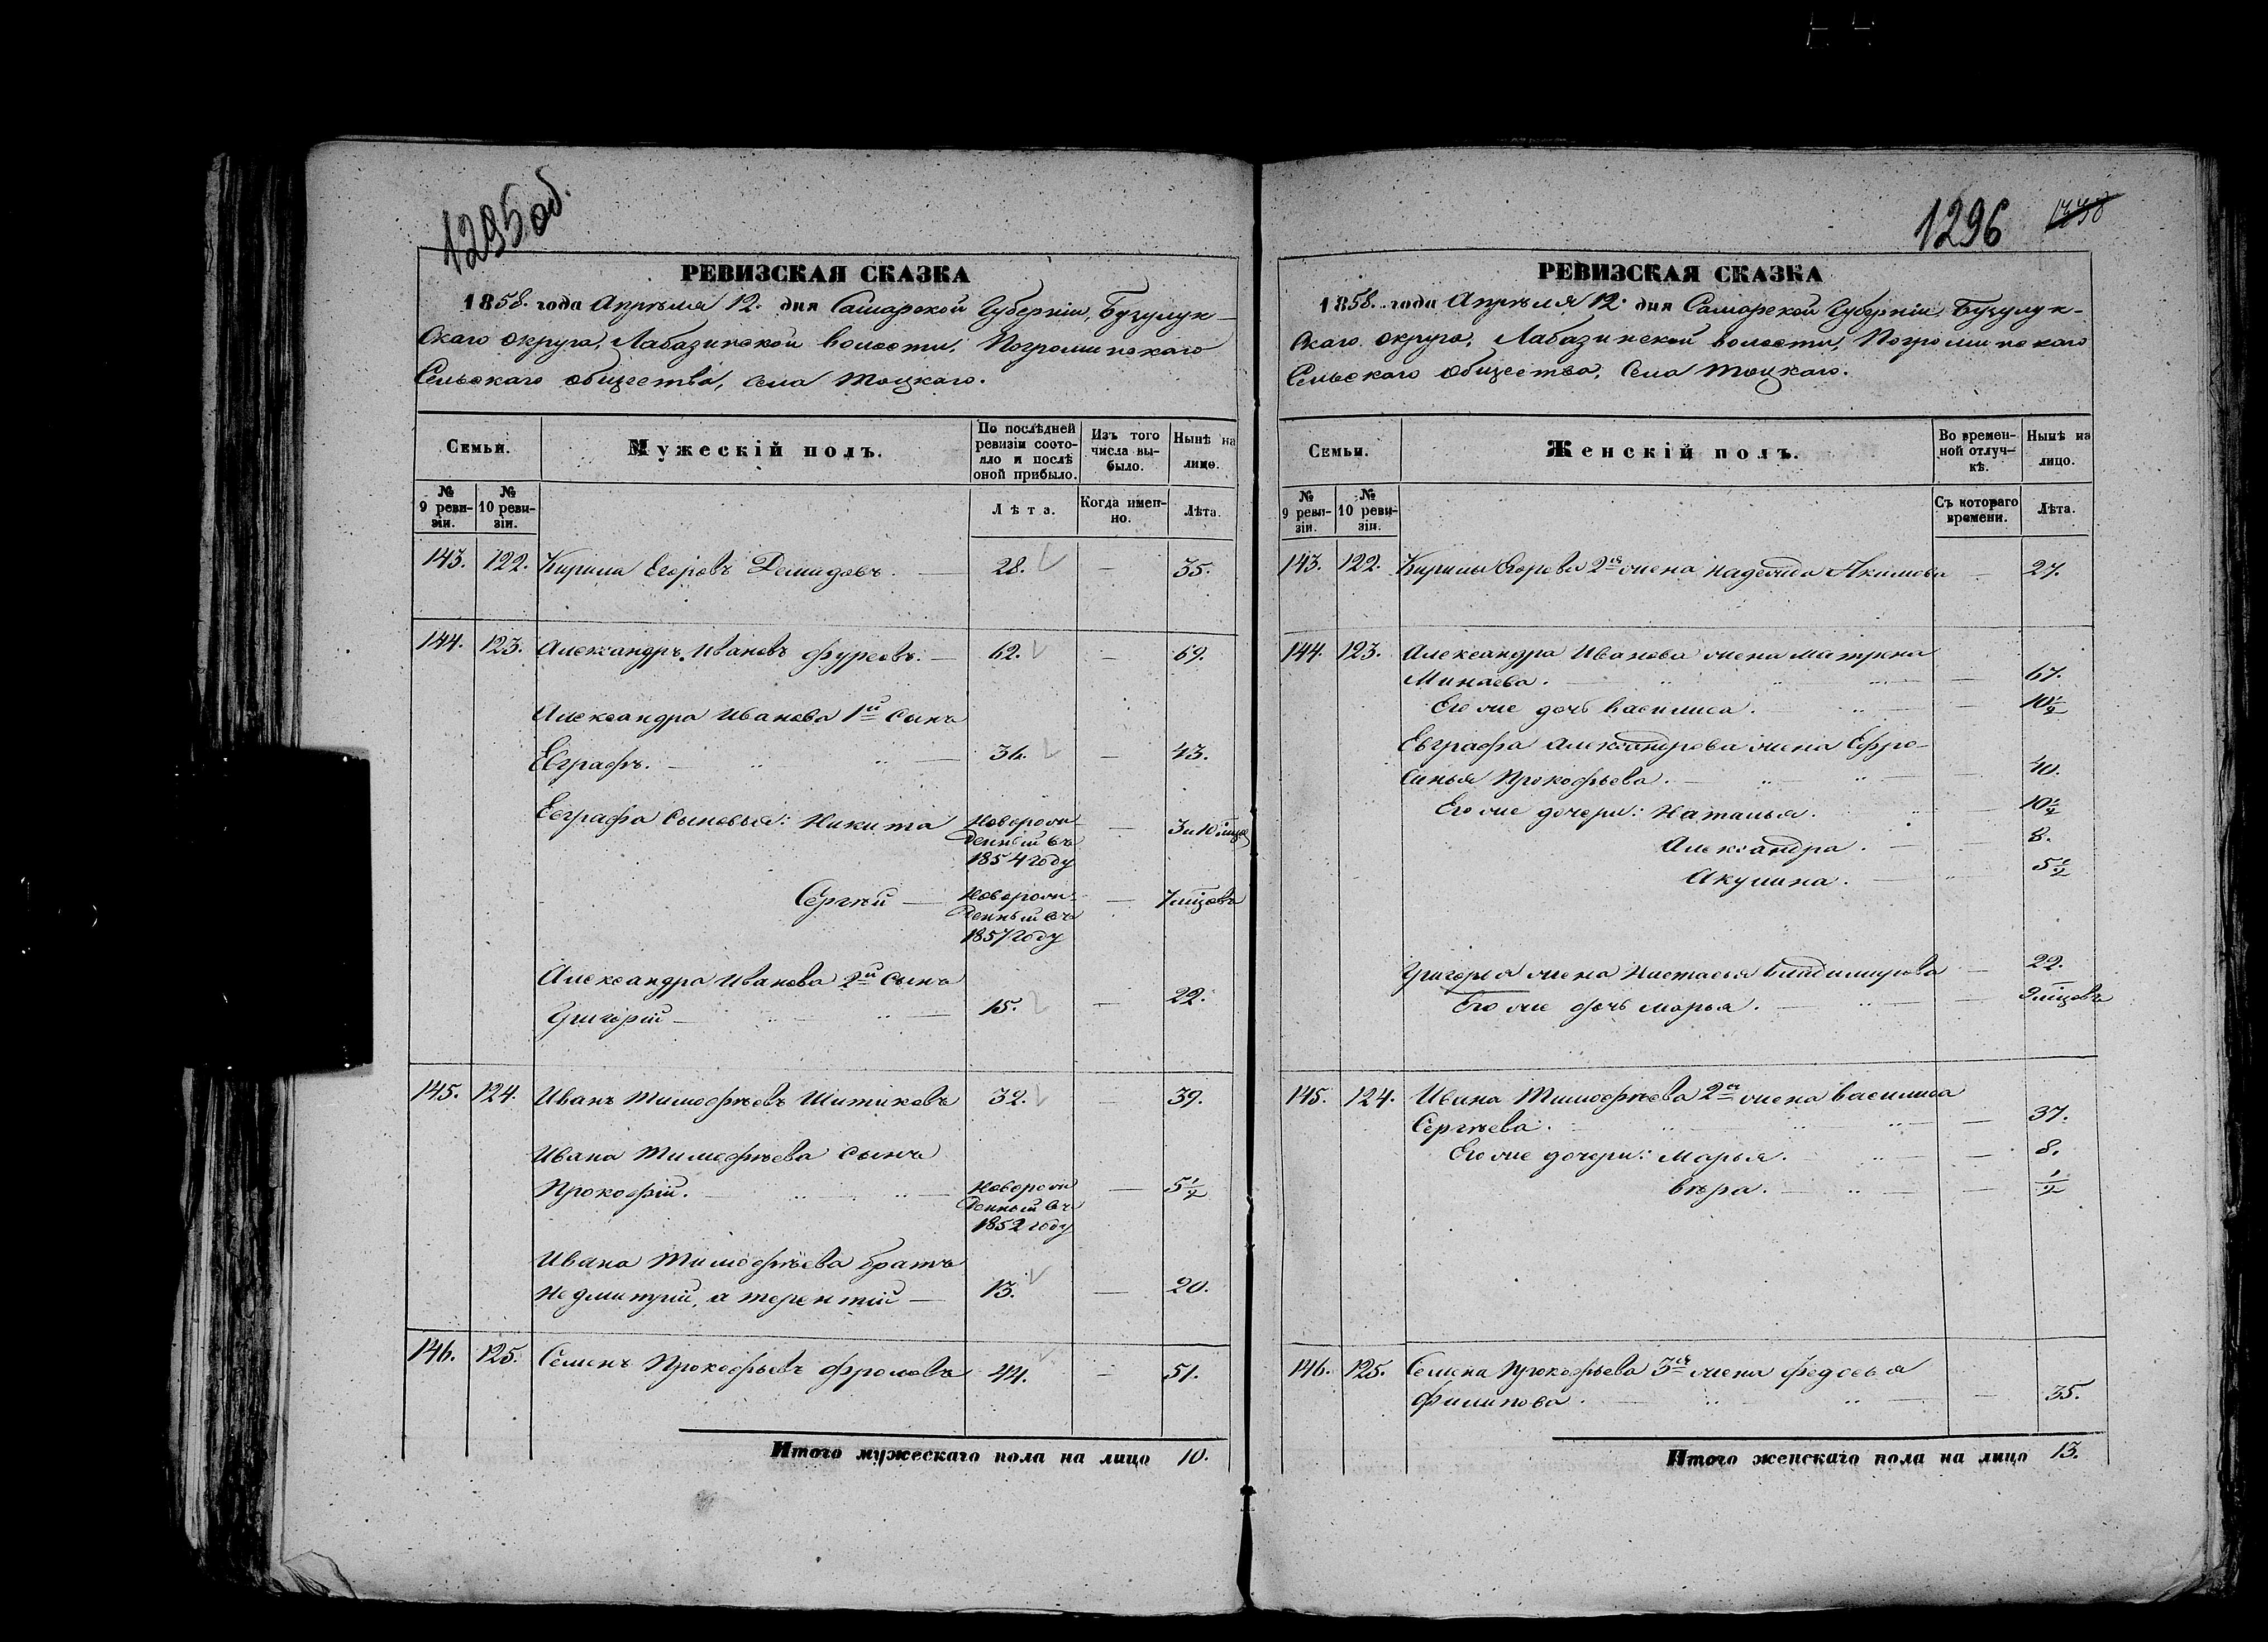 1295 об.
РЕВИЗСКАЯ СКАЗКА
1858. года Апрѣля 12. дня Самарской Губерніи, Бузулук-
скаго округа, Лабазинской волости, Погроминскаго
Сельскаго общества, Села Тоцкаго.
Семьи.
Мужескій полъ.
По послѣдней ревизіи состояло и послѣ оной прибыло.
Изъ того числа выбыло.
Нынѣ на лицо.
№ 9 ревизіи.
№ 10 ревизіи.
Лѣта.
Когда именно.
Лѣта.
143. 122. Кирила Егоровъ Демидовъ. 28. — 35.
144. 123. Александръ Ивановъ Фурсовъ. — 62. — 69.
Александра Иванова 1й сынъ
Евграфъ. — 36. — 43.
Евграфа сыновья: Никита Новорожденный въ 1854 году — 3 и 10 мцов
Сергѣй — Новорожденный въ 1857 году — 7 мцовъ
Александра Иванова 2й сынъ
Григорій — 15. — 22.
145. 124. Иванъ Тимофѣевъ Шитиковъ 32. — 39.
Ивана Тимофѣева сынъ
Прокофій. — Новорожденный въ 1852 году — 5 1/2
Ивана Тимофѣева братъ
не Дмитрий, а Терентій — 13. — 20.
146. 125. Семенъ Прокофьевъ Фроловъ 44. — 51.
Итого мужескаго пола на лицо 10.
1296
РЕВИЗСКАЯ СКАЗКА
1858. года Апрѣля 12. дня Самарской Губерніи, Бузулук-
скаго округа, Лабазинской волости, Погроминскаго
Сельскаго общества, Села Тоцкаго.
Семьи.
Женскій полъ.
Во временной отлучкѣ.
Нынѣ на лицо.
№ 9 ревизіи.
№ 10 ревизіи.
Съ котораго времени.
Лѣта.
143. 122. Кирилы Егорова 2я жена Надежда Акимова — 27.
144. 123. Александра Иванова жена Матрена
Минаева. — 67.
Его же дочь Василиса. — 10 1/2
Евграфа Александрова жена Ефро-
синья Прокофьева. — 40.
Его же дочери: Наталья. — 10 1/2
Александра. — 8.
Акулина. — 5 1/2
Григорья жена Настасья Владимирова — 22.
Его же дочь Марья. — 9 мцовъ
145. 124. Ивана Тимофѣева 2я жена Василиса
Сергѣева. — 37.
Его же дочери: Марья. — 8.
Вѣра. — 1/2
146. 125. Семена Прокофьева 3я жена Федосья
Филипова. — 35.
Итого женскаго пола на лицо 13.